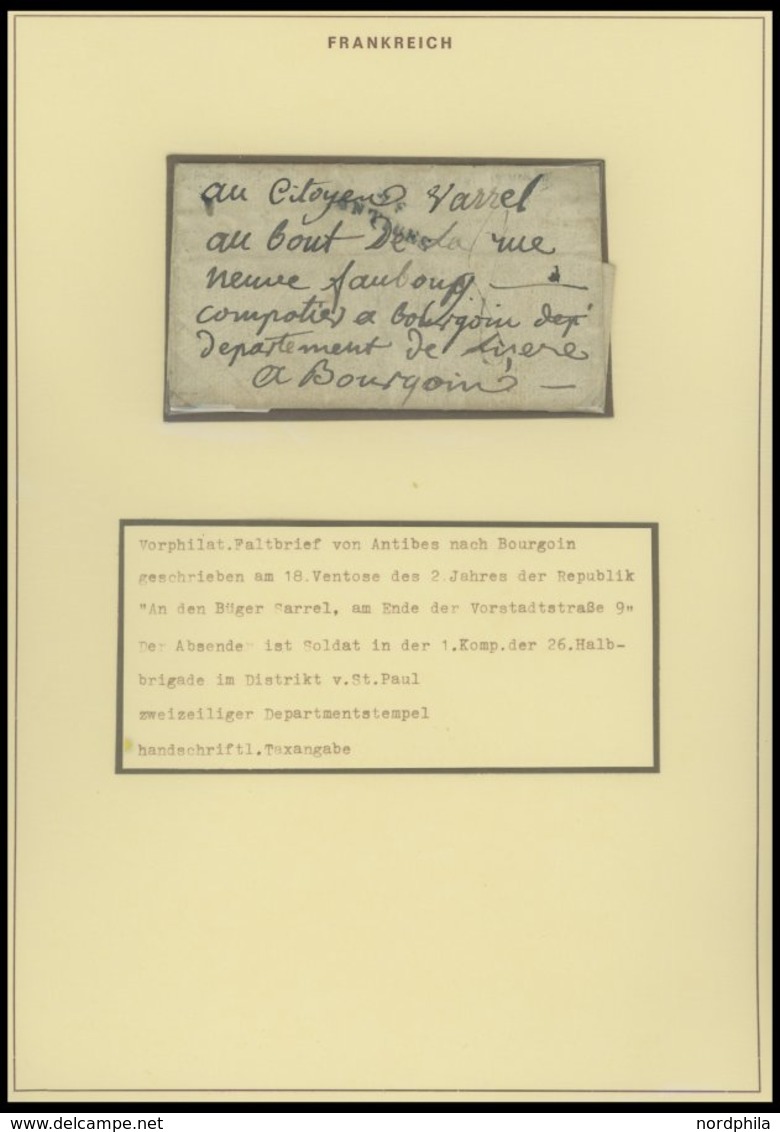 FRANKREICH
au Citoyen Varrel
ANTIBES
au bout De La rue
neuve faubourg
compotier a bourgoin dep
departement de Lisere
a Bourgoin
Vorphilat.Faltbrief von Antibes nach Bourgoin
geschrieben am 18.Ventose des 2.Jahres der Republik
"An den Büger Sarrel, am Ende der Vorstadtstraße 9"
Der Absender ist Soldat in der 1.Komp.der 26.Halb-
brigade im Distrikt v.St.Paul
zweizeiliger Departmentstempel
handschriftl.Taxangabe
www.delcampe.net
nordphila